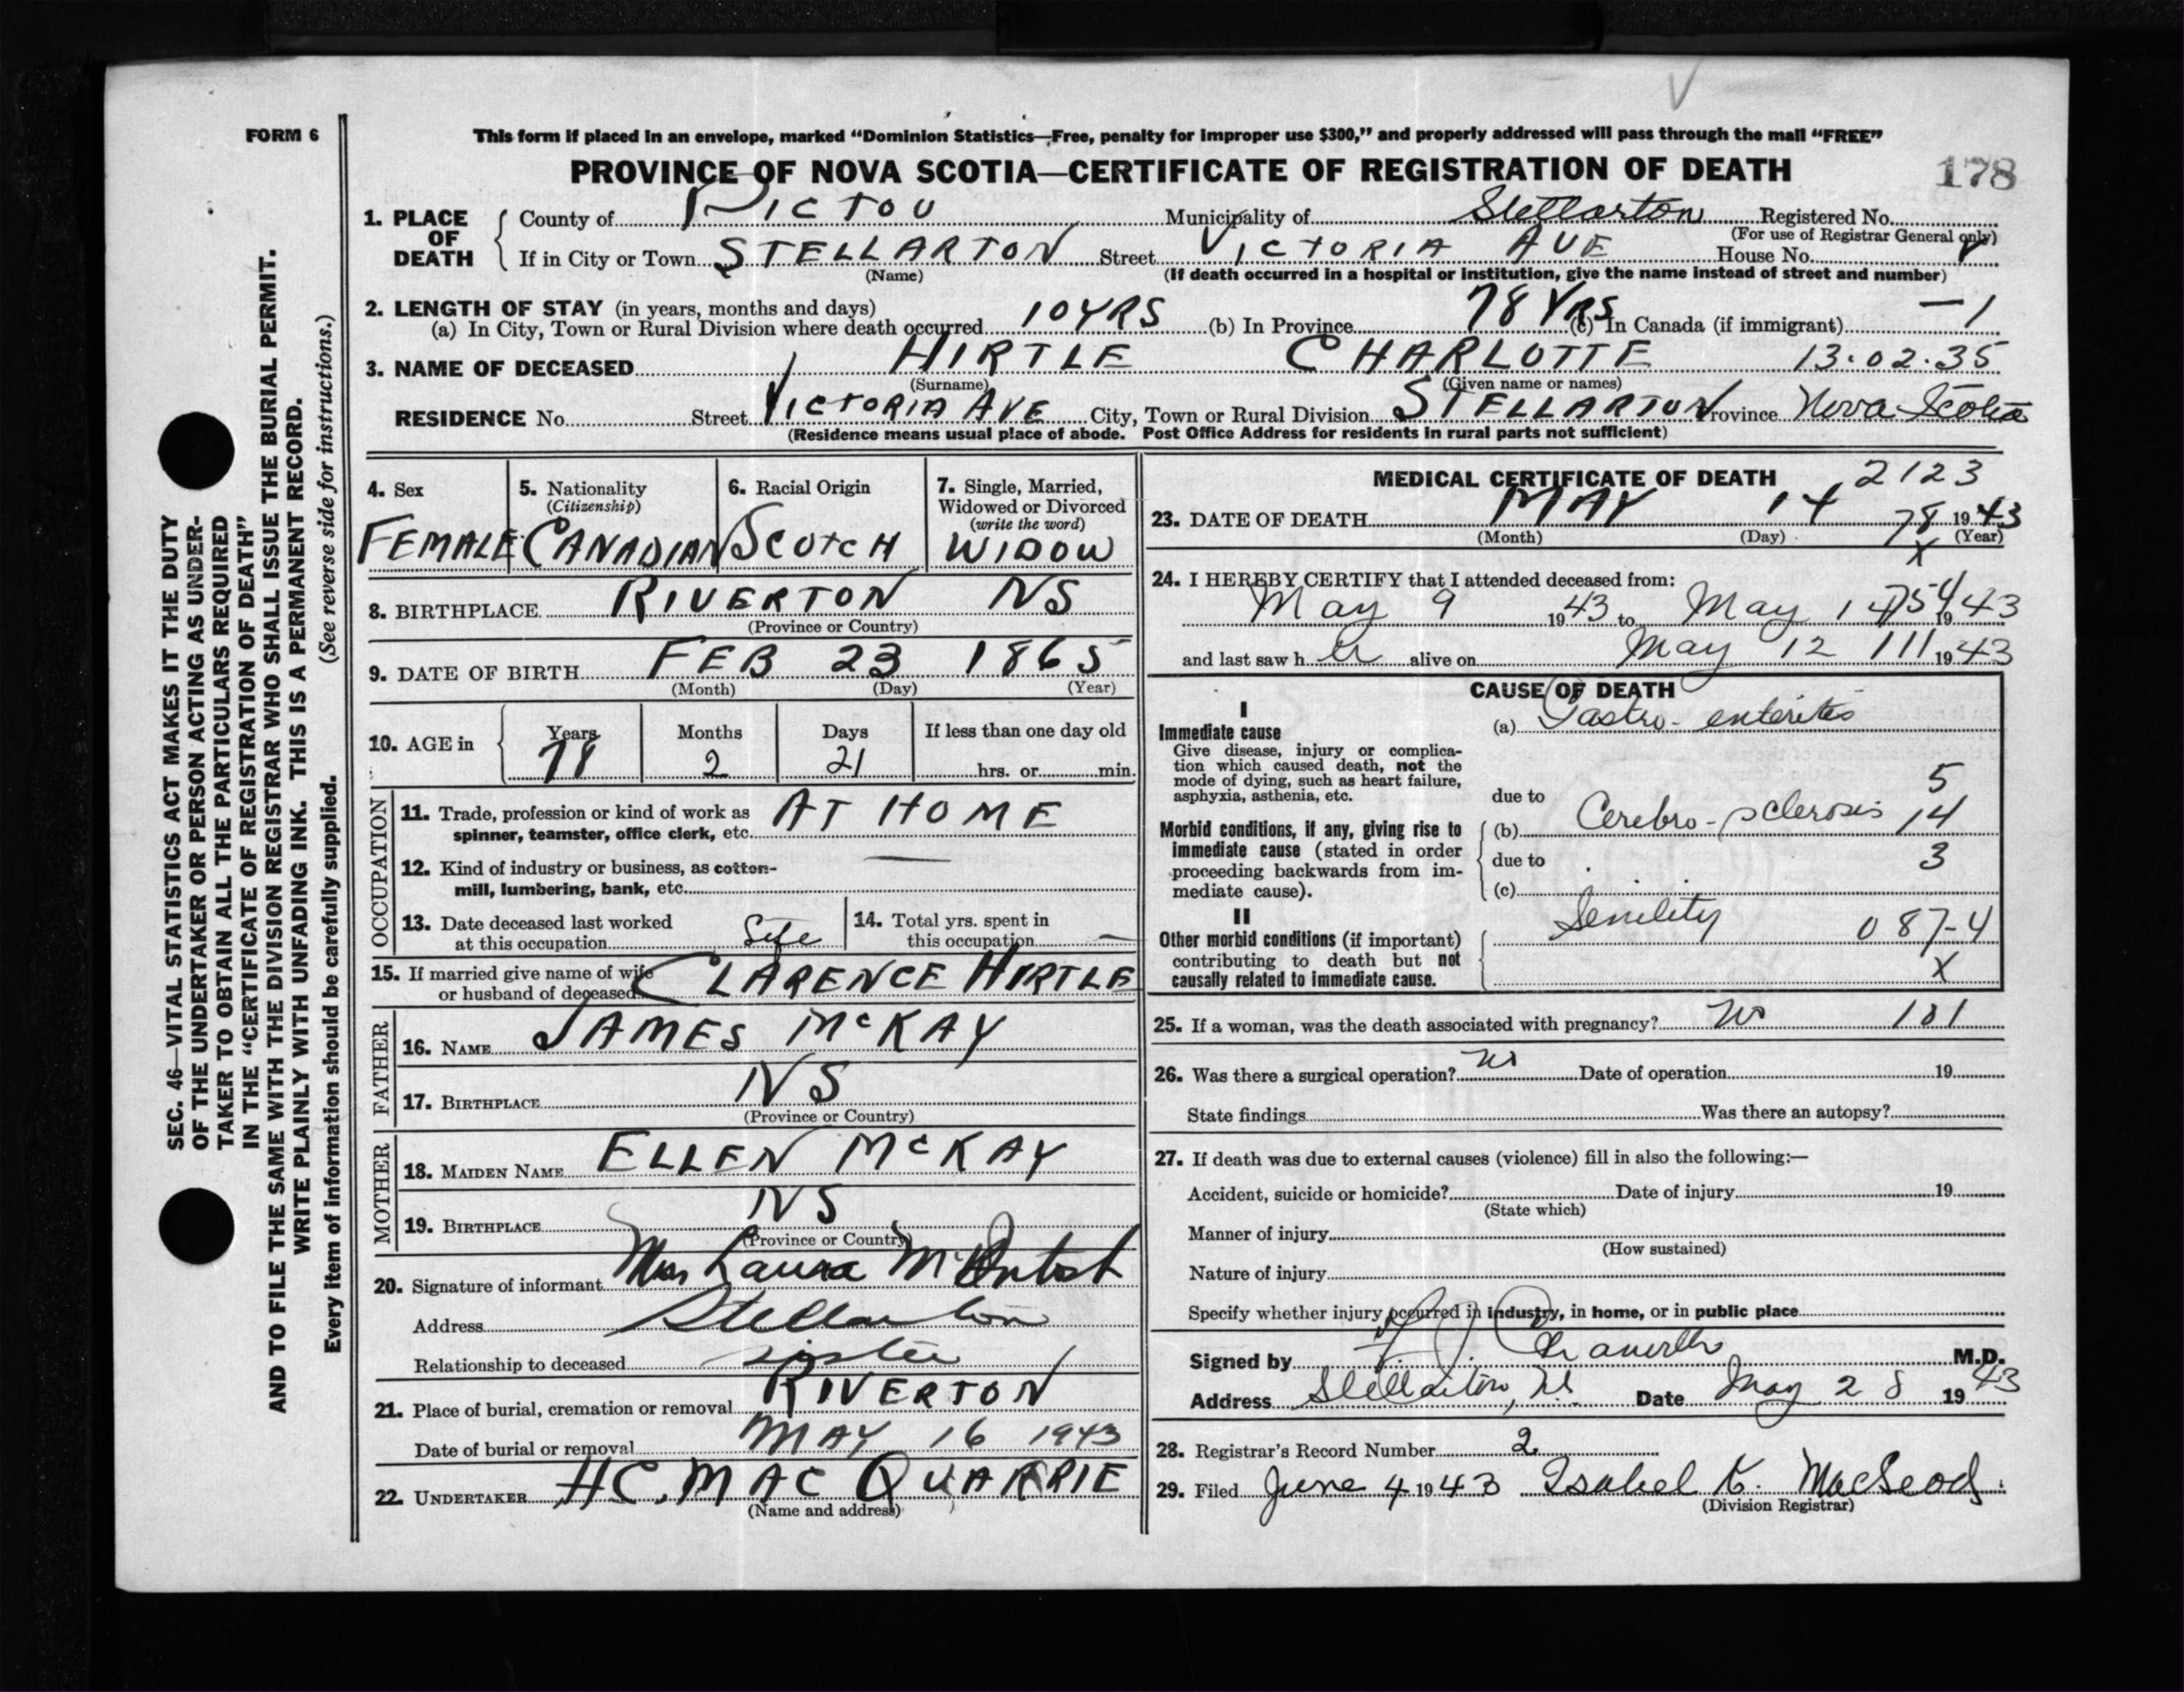 FORM 6
This form if placed in an envelope, marked “Dominion Statistics—Free, penalty for improper use $300,” and properly addressed will pass through the mail “FREE”
PROVINCE OF NOVA SCOTIA—CERTIFICATE OF REGISTRATION OF DEATH
178
1. PLACE OF DEATH
County of PICTOU Municipality of Stellarton Registered No.
(For use of Registrar General only)
If in City or Town STELLARTON Street VICTORIA AVE House No.
(Name) (If death occurred in a hospital or institution, give the name instead of street and number)
2. LENGTH OF STAY (in years, months and days)
(a) In City, Town or Rural Division where death occurred 10 YRS (b) In Province 78 YRS (c) In Canada (if immigrant) — 1
3. NAME OF DECEASED HIRTLE CHARLOTTE 13·02·35
(Surname) (Given name or names)
RESIDENCE No. Street VICTORIA AVE City, Town or Rural Division STELLARTON Province Nova Scotia
(Residence means usual place of abode. Post Office Address for residents in rural parts not sufficient)
SEC. 46—VITAL STATISTICS ACT MAKES IT THE DUTY
OF THE UNDERTAKER OR PERSON ACTING AS UNDER-
TAKER TO OBTAIN ALL THE PARTICULARS REQUIRED
IN THE “CERTIFICATE OF REGISTRATION OF DEATH”
AND TO FILE THE SAME WITH THE DIVISION REGISTRAR WHO SHALL ISSUE THE BURIAL PERMIT.
WRITE PLAINLY WITH UNFADING INK. THIS IS A PERMANENT RECORD.
Every item of information should be carefully supplied. (See reverse side for instructions.)
4. Sex 5. Nationality 6. Racial Origin 7. Single, Married,
(Citizenship) Widowed or Divorced
(write the word)
FEMALE CANADIAN SCOTCH WIDOW
8. BIRTHPLACE RIVERTON NS
(Province or Country)
9. DATE OF BIRTH FEB 23 1865
(Month) (Day) (Year)
10. AGE in Years Months Days If less than one day old
78 2 21 hrs. or min.
OCCUPATION
11. Trade, profession or kind of work as AT HOME
spinner, teamster, office clerk, etc.
12. Kind of industry or business, as cotton- —
mill, lumbering, bank, etc.
13. Date deceased last worked 14. Total yrs. spent in
at this occupation Life this occupation —
15. If married give name of wife
or husband of deceased CLARENCE HIRTLE
FATHER
16. NAME JAMES McKAY
17. BIRTHPLACE NS
(Province or Country)
MOTHER
18. MAIDEN NAME ELLEN McKAY
19. BIRTHPLACE NS
(Province or Country)
20. Signature of informant Laura McIntosh
Address Stellarton
Relationship to deceased sister
21. Place of burial, cremation or removal RIVERTON
Date of burial or removal MAY 16 1943
22. UNDERTAKER HC. MAC QUARRIE
(Name and address)
MEDICAL CERTIFICATE OF DEATH 2123
23. DATE OF DEATH MAY 14 78 1943
(Month) (Day) (Year)
X
24. I HEREBY CERTIFY that I attended deceased from:
May 9 1943 to May 14 1943
and last saw her alive on May 12 111 1943
CAUSE OF DEATH
I
Immediate cause (a) Gastro-enteritis
Give disease, injury or complica-
tion which caused death, not the
mode of dying, such as heart failure,
asphyxia, asthenia, etc. due to 5
Morbid conditions, if any, giving rise to (b) Cerebro-sclerosis 14
immediate cause (stated in order due to 3
proceeding backwards from im-
mediate cause). (c)
II
Senility 087-4
Other morbid conditions (if important)
contributing to death but not X
causally related to immediate cause.
25. If a woman, was the death associated with pregnancy? no 101
26. Was there a surgical operation? no Date of operation 19
State findings Was there an autopsy?
27. If death was due to external causes (violence) fill in also the following:—
Accident, suicide or homicide? Date of injury 19
(State which)
Manner of injury
(How sustained)
Nature of injury
Specify whether injury occurred in industry, in home, or in public place
Signed by M.D.
Address Stellarton, N.S. Date May 28 1943
28. Registrar's Record Number 2
29. Filed June 4 1943 Isabel K. MacLeod
(Division Registrar)